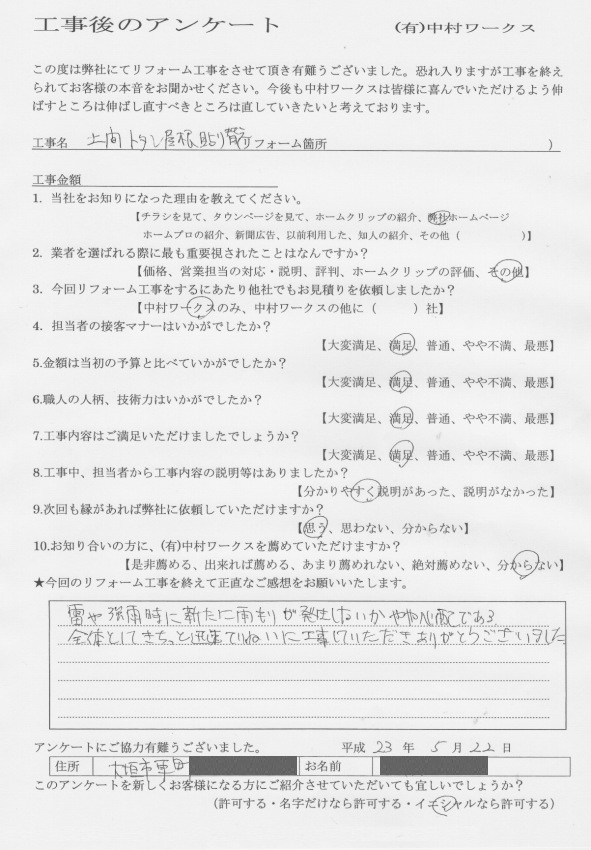 工事後のアンケート (有)中村ワークス
この度は弊社にてリフォーム工事をさせて頂き有難うございました。恐れ入りますが工事を終え
られてお客様の本音をお聞かせください。今後も中村ワークスは皆様に喜んでいただけるよう伸
ばすところは伸ばし直すべきところは直していきたいと考えております。
工事名 土間トタン屋根貼り替 リフォーム箇所 )
工事金額
1. 当社をお知りになった理由を教えてください。
【チラシを見て、タウンページを見て、ホームクリップの紹介、弊社ホームページ
ホームプロの紹介、新聞広告、以前利用した、知人の紹介、その他( )】
2. 業者を選ばれる際に最も重要視されたことはなんですか?
【価格、営業担当の対応・説明、評判、ホームクリップの評価、その他】
3. 今回リフォーム工事をするにあたり他社でもお見積りを依頼しましたか?
【中村ワークスのみ、中村ワークスの他に( )社】
4. 担当者の接客マナーはいかがでしたか?
【大変満足、満足、普通、やや不満、最悪】
5.金額は当初の予算と比べていかがでしたか?
【大変満足、満足、普通、やや不満、最悪】
6.職人の人柄、技術力はいかがでしたか?
【大変満足、満足、普通、やや不満、最悪】
7.工事内容はご満足いただけましたでしょうか?
【大変満足、満足、普通、やや不満、最悪】
8.工事中、担当者から工事内容の説明等はありましたか?
【分かりやすく説明があった、説明がなかった】
9.次回も縁があれば弊社に依頼していただけますか?
【思う、思わない、分からない】
10.お知り合いの方に、(有)中村ワークスを薦めていただけますか?
【是非薦める、出来れば薦める、あまり薦めれない、絶対薦めない、分からない】
★今回のリフォーム工事を終えて正直なご感想をお願いいたします。
雷や強雨時に新たに雨もりが発生しないかやや心配である
全体としてきちっと迅速ていねいに工事していただきありがとうございました
アンケートにご協力有難うございました。 平成 23 年 5 月 22 日
住所 大垣市東町 お名前
このアンケートを新しくお客様になる方にご紹介させていただいても宜しいでしょうか?
(許可する・名字だけなら許可する・イニシャルなら許可する)